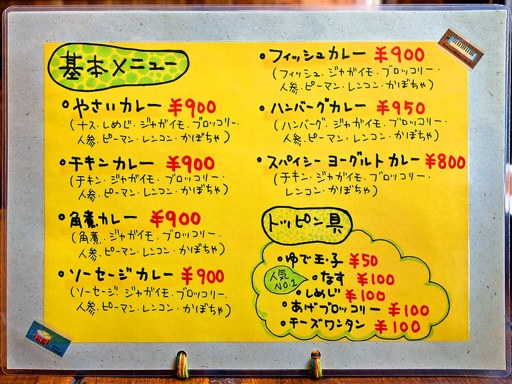 基本メニュー
・やさいカレー ¥900
(ナス・しめじ・ジャガイモ・ブロッコリー・
人参・ピーマン・レンコン・かぼちゃ)
・チキンカレー ¥900
(チキン・ジャガイモ・ブロッコリー・
人参・ピーマン・レンコン・かぼちゃ)
・角煮カレー ¥900
(角煮・ジャガイモ・ブロッコリー・
人参・ピーマン・レンコン・かぼちゃ)
・ソーセージカレー ¥900
(ソーセージ・ジャガイモ・ブロッコリー・
人参・ピーマン・レンコン・かぼちゃ)
・フィッシュカレー ¥900
(フィッシュ・ジャガイモ・ブロッコリー・
人参・ピーマン・レンコン・かぼちゃ)
・ハンバーグカレー ¥950
(ハンバーグ・ジャガイモ・ブロッコリー・
人参・ピーマン・レンコン・かぼちゃ)
・スパイシーヨーグルトカレー ¥800
(チキン・ジャガイモ・ブロッコリー・
レンコン・かぼちゃ)
トッピン具
・ゆで玉子 ¥50
人気NO.1
・なす ¥100
・しめじ ¥100
・あげブロッコリー ¥100
・チーズワンタン ¥100